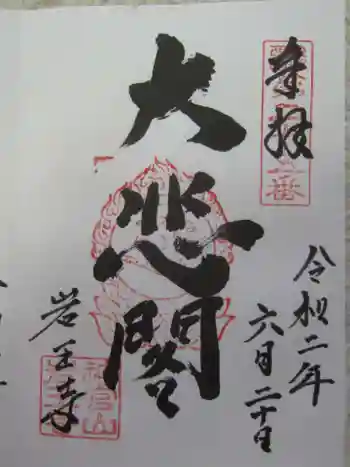 奉拝
令和二年
六月二十日
大悲閣
岩王寺